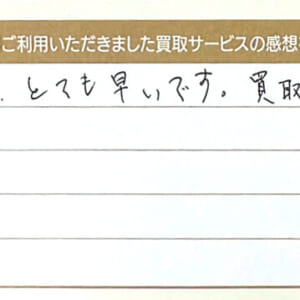 ご利用いただきました買取サービスの感想
とても早いです。買取